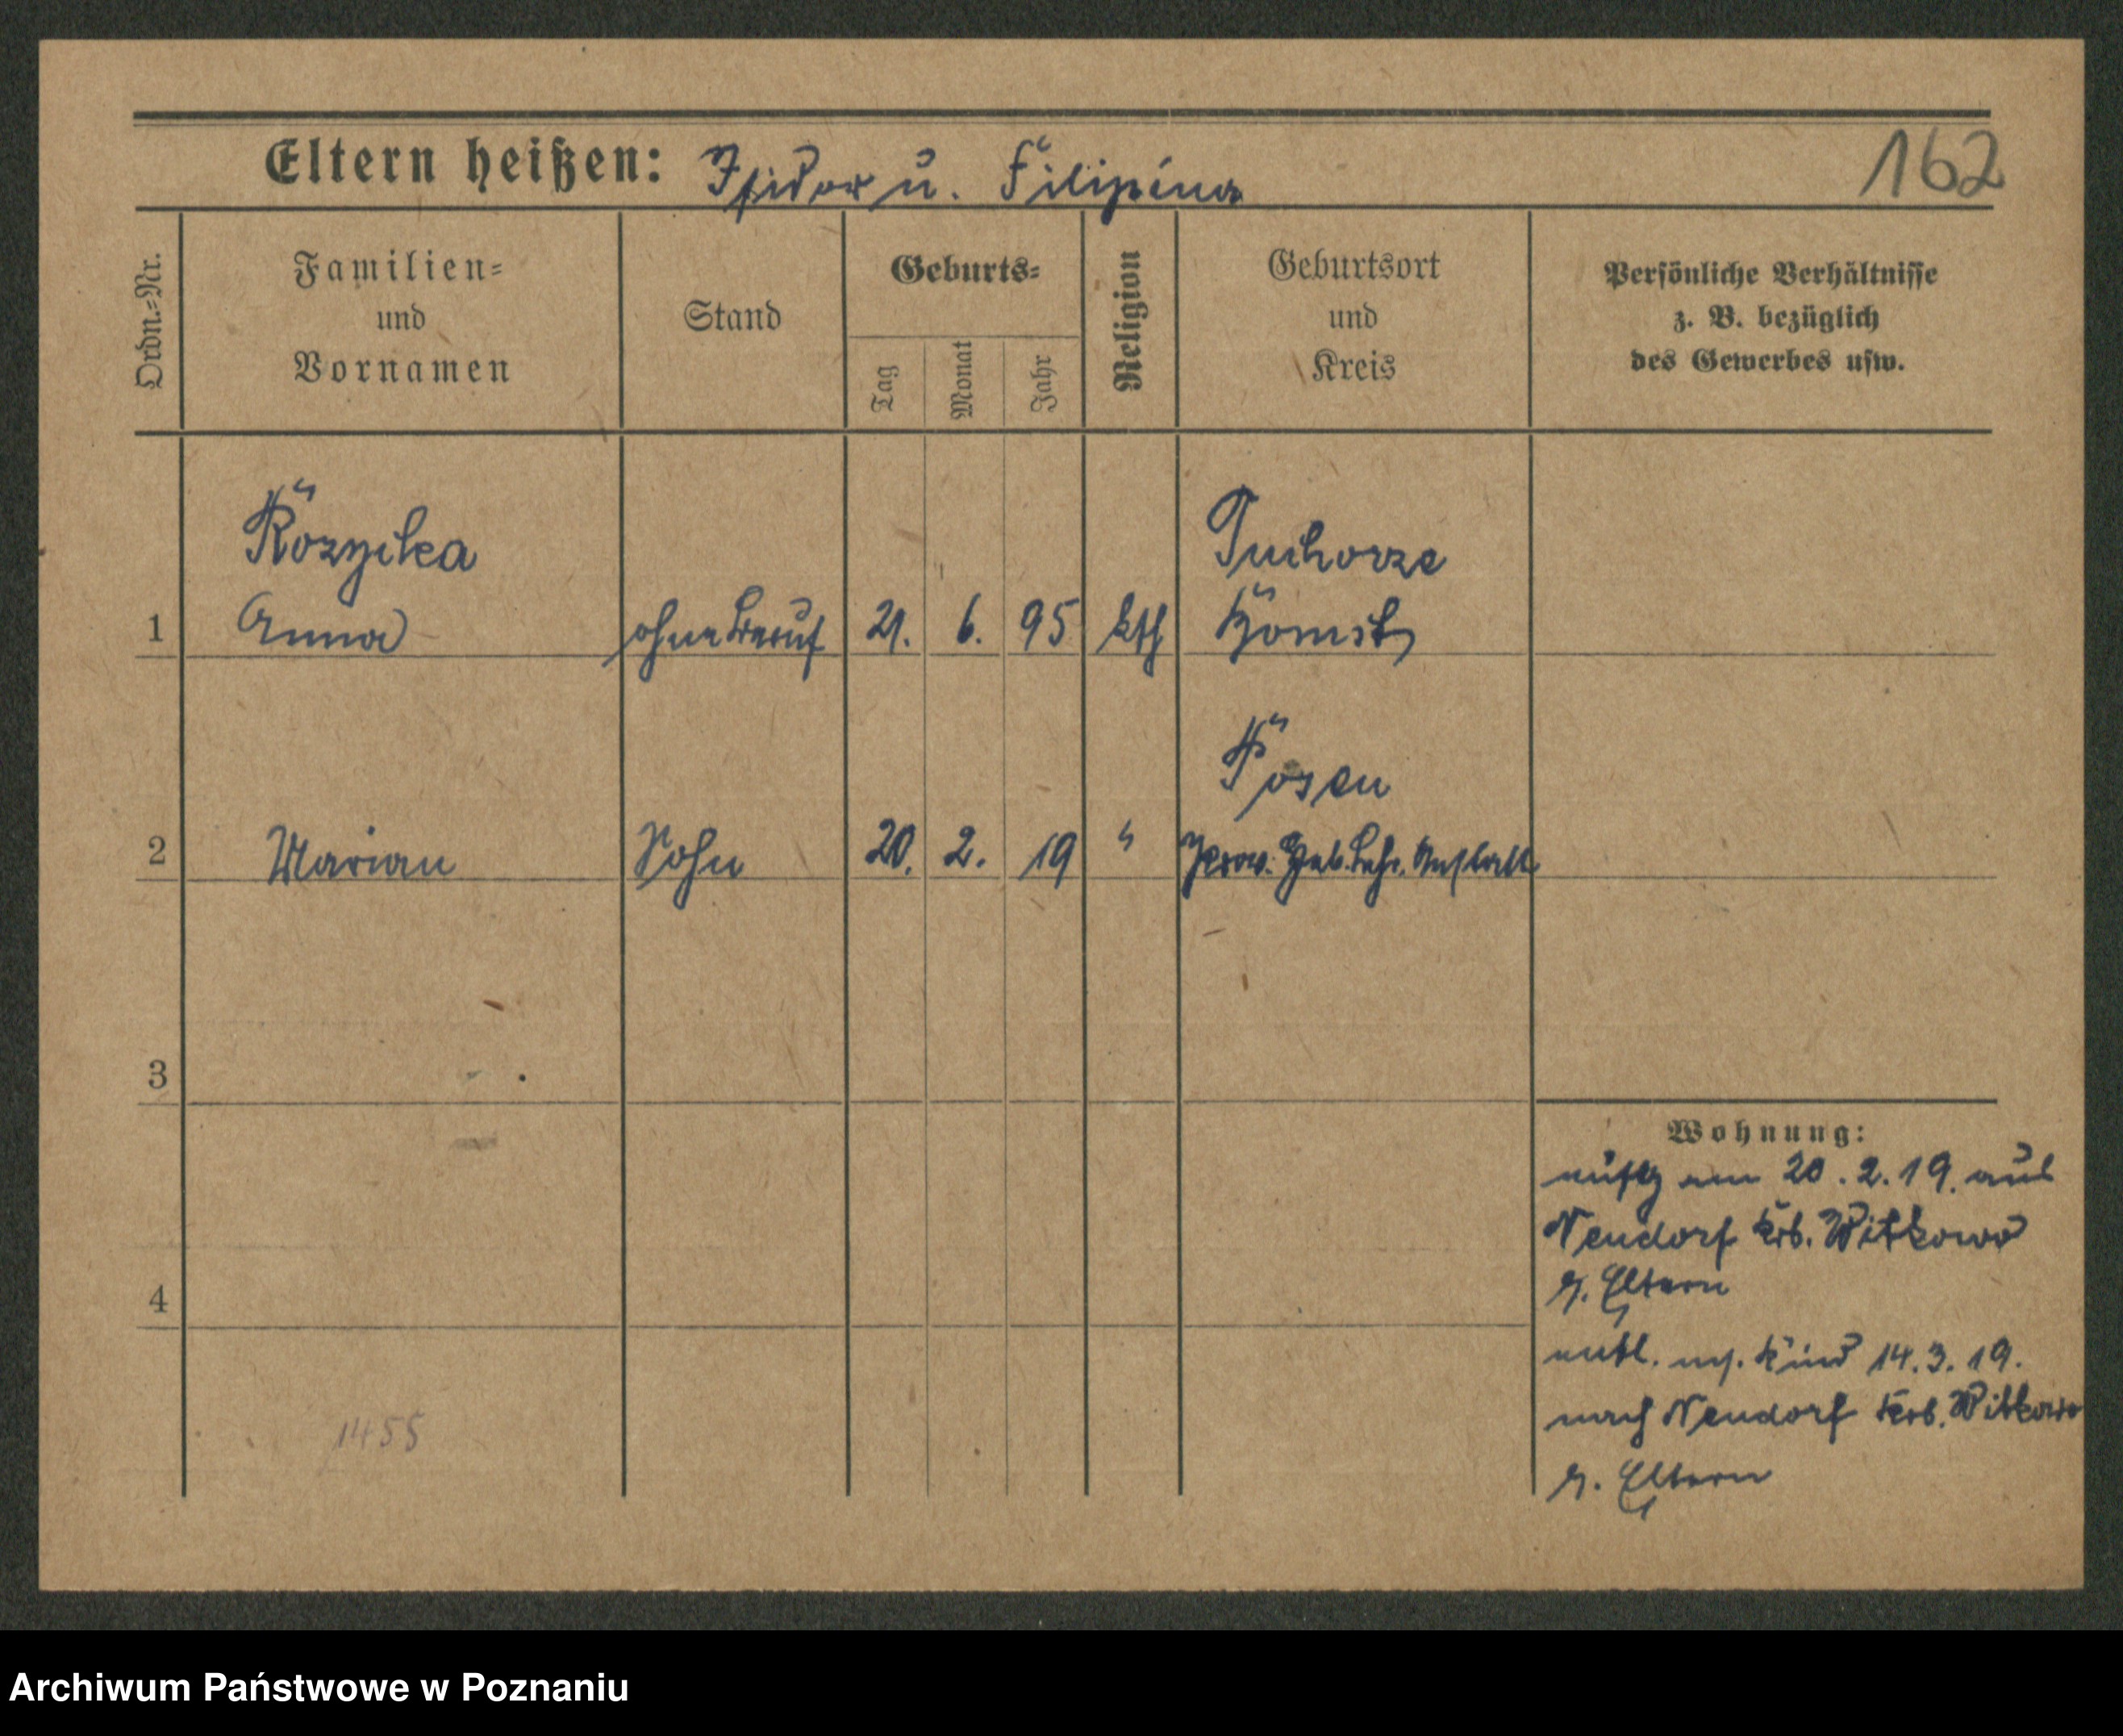 Eltern heißen: Isidor u. Filipina
162
Ordn.=Nr.
Familien=
und
Vornamen
Stand
Geburts=
Tag
Monat
Jahr
Religion
Geburtsort
und
Kreis
Persönliche Verhältnisse
z. B. bezüglich
des Gewerbes usw.
Rozycka
Tuchorze
1 Anna ohne Beruf 21. 6. 95 kth Bomst
Posen
2 Marian Sohn 20. 2. 19 " Prov. Heb. Lehr. Anstalt
3
Wohnung:
am 20. 2. 19. aus
Neudorf Krs. Witkowo
z. Eltern
4
m. Kind 14. 3. 19.
nach Neudorf Krs. Witkowo
z. Eltern
1455
Archiwum Państwowe w Poznaniu